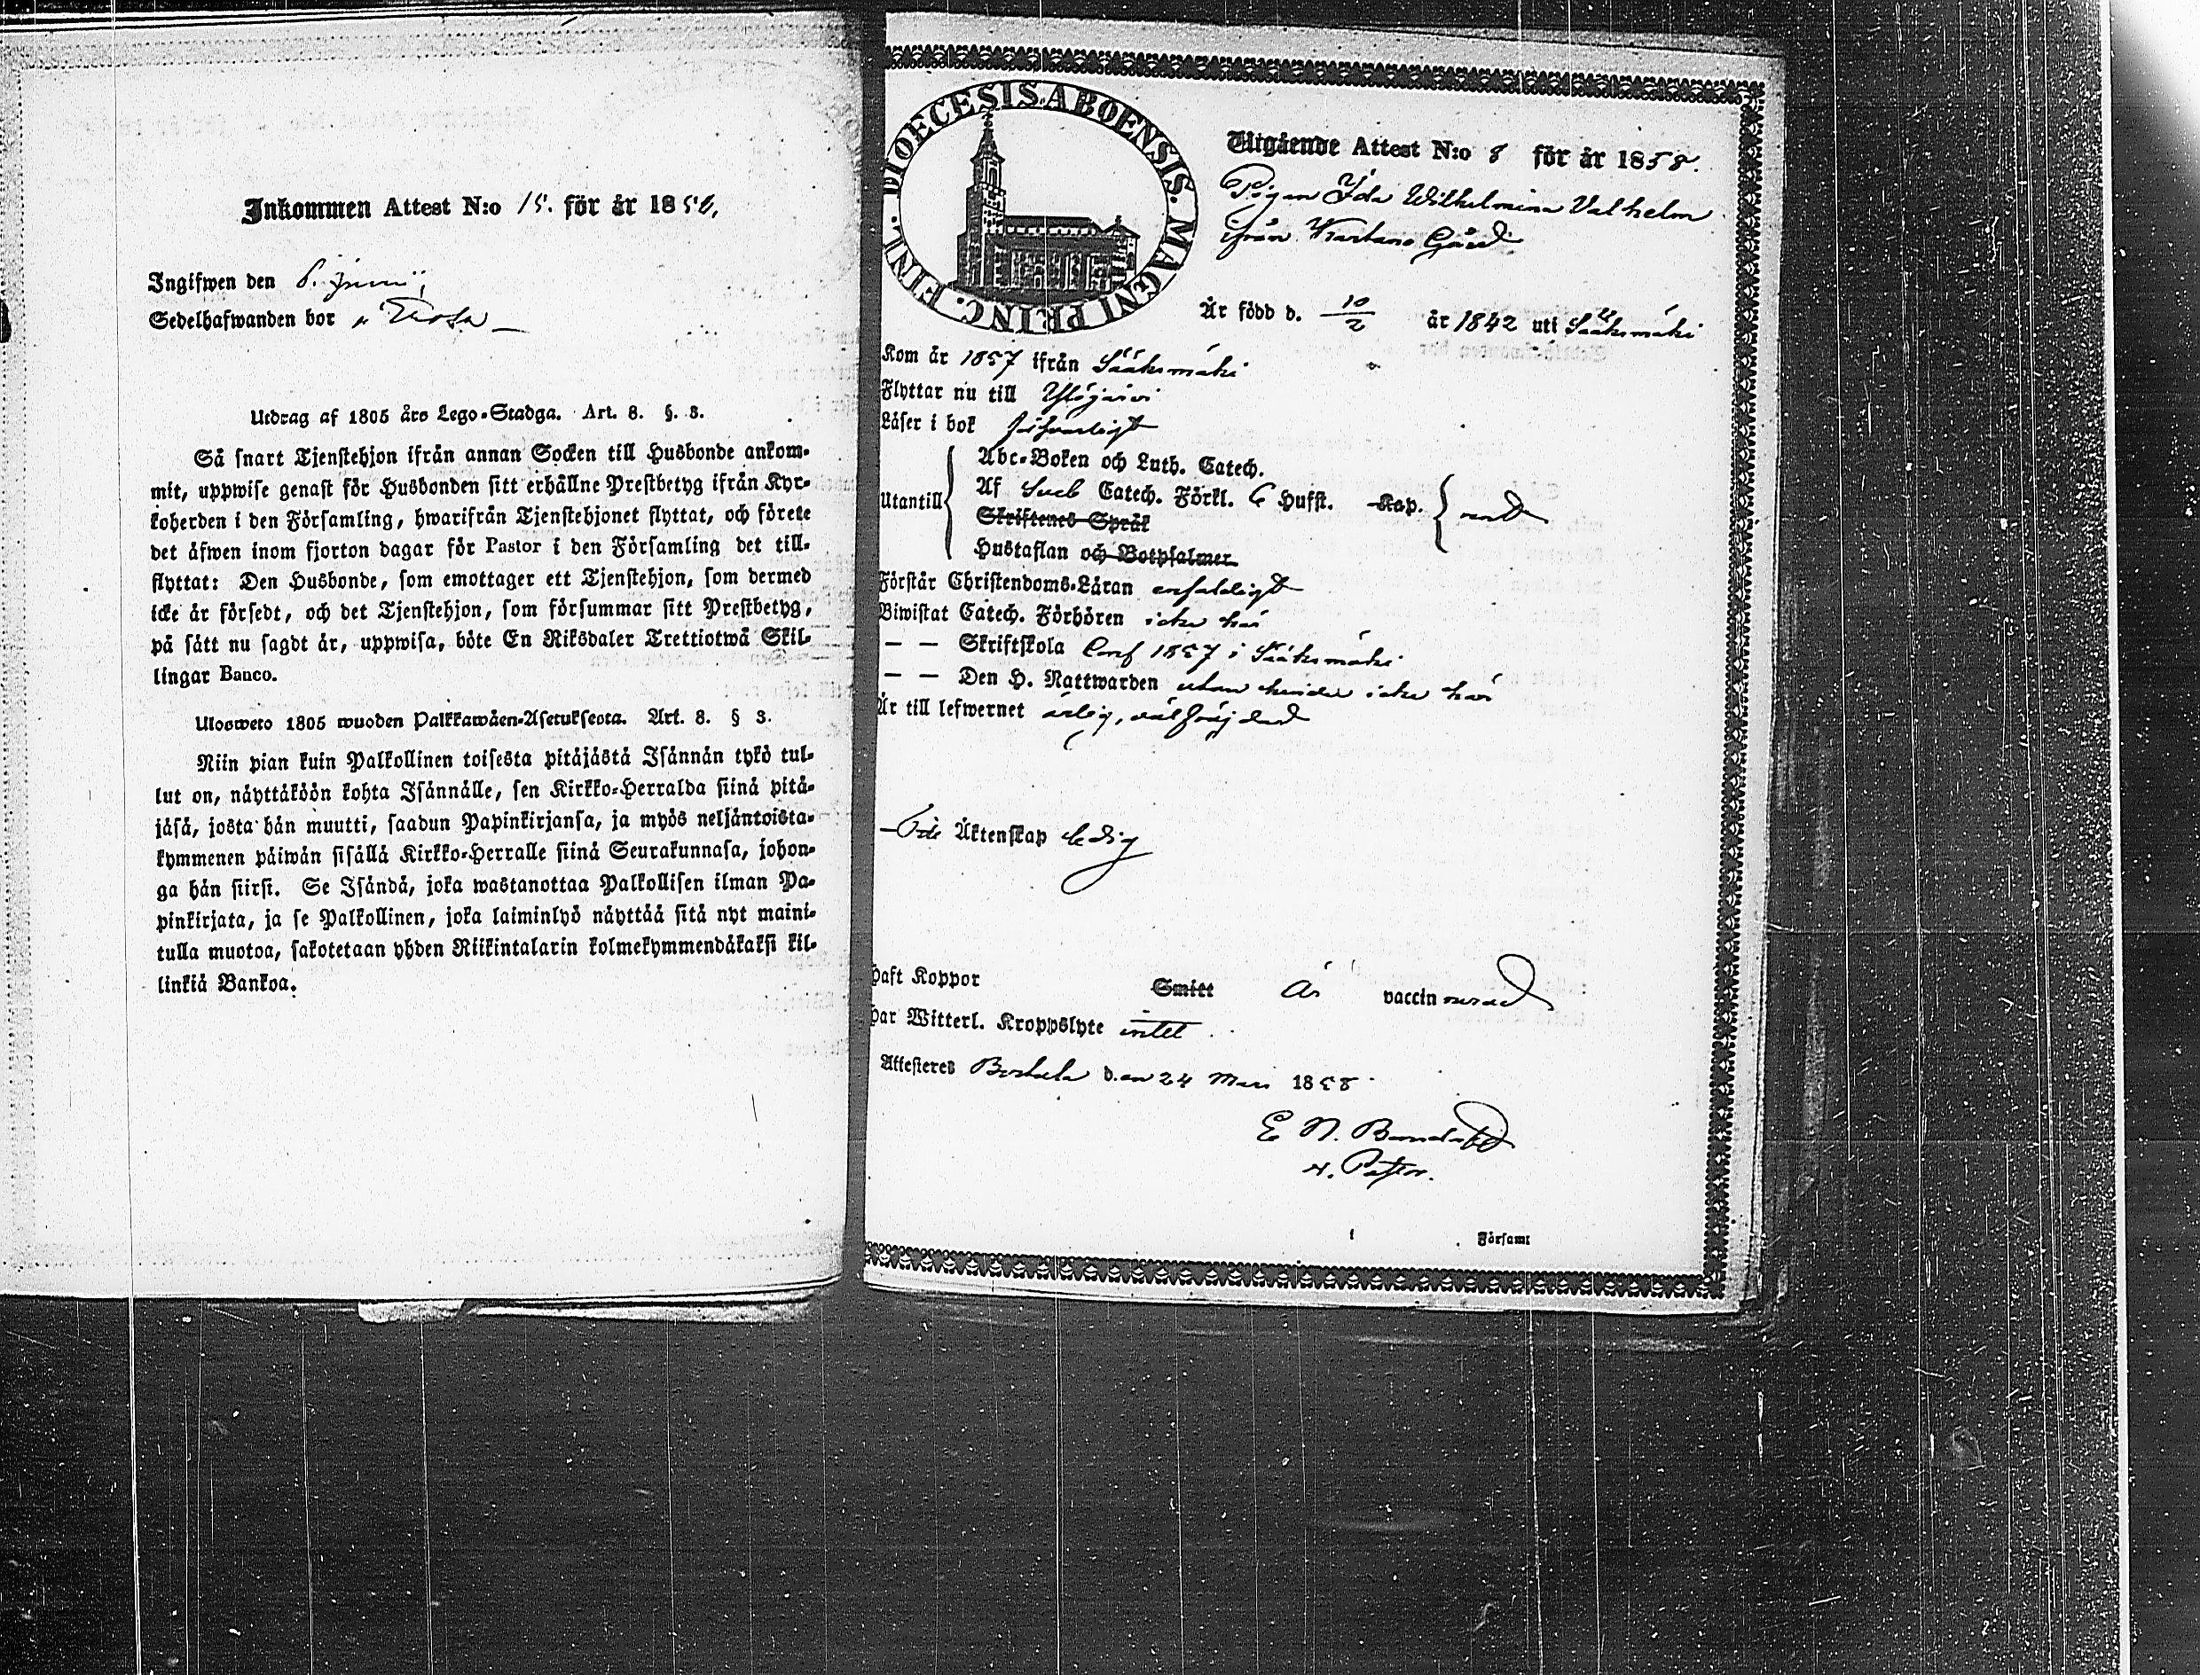 Inkommen Attest N:o 15. för år 1856.
Ingifwen den 8. Junii,
Sedelhafwanden bor
Utdrag af 1805 års Lego-Stadga. Art. 8. §. 3.
Så snart Tjenstehjon ifrån annan Socken till Husbonde ankom-
mit, uppwise genast för Husbonden sitt erhållne Prestbetyg ifrån Kyr-
koherden i den Församling, hwarifrån Tjenstehjonet flyttat, och förete
det äfwen inom fjorton dagar för Pastor i den Församling det till-
flyttat: Den Husbonde, som emottager ett Tjenstehjon, som dermed
icke är försedt, och det Tjenstehjon, som försummar sitt Prestbetyg,
på sätt nu sagdt är, uppwisa, böte En Riksdaler Trettiotwå Skil-
lingar Banco.
Ulosweto 1805 wuoden Palkkawäen-Asetuksesta. Art. 8. § 3.
Niin pian kuin Palkollinen toisesta pitäjästä Isännän tykö tul-
lut on, näyttäköön kohta Isännälle, sen Kirkko-Herralda siinä pitä-
jäsä, josta hän muutti, saadun Papinkirjansa, ja myös neljäntoista-
kymmenen päiwän sisällä Kirkko-Herralle siinä Seurakunnasa, johon-
ga hän siirsi. Se Isändä, joka wastanottaa Palkollisen ilman Pa-
pinkirjata, ja se Palkollinen, joka laiminlyö näyttää sitä nyt maini-
tulla muotoa, sakotetaan yhden Riikintalarin kolmekymmendäkaksi kil-
linkiä Bankoa.
DIOECESIS ABOENSIS. MAGNI PRINC. FINL.
Utgående Attest N:o 8 för år 1858.
Pigan Ida Wilhelmina Valhelm
ifrån Kartano Gård
Är född d. 10/2 år 1842 uti Sääksmäki
Kom år 1857 ifrån Sääksmäki
Flyttar nu till Ylöjärvi
Läser i bok försvarligt
Utantill
Abc-Boken och Luth. Catech.
Af Sueb Catech. Förkl. 6 Hufst. Kap.
Skriftenes Språk
Hustaflan och Botpsalmer
Förstår Christendoms-Läran enfaldigt
Biwistat Catech. Förhören icke här
— — Skriftskola Conf 1857 i Sääksmäki
— — Den H. Nattwarden utan hinder icke här
Är till lefwernet ärlig, välfräjdad
Äktenskap ledig
Haft Koppor Smitt Är vaccinerad
Har Witterl. Kroppslyte intet.
Attesteres d. en 24 1858.
E N.
v. Pastor.
Församl